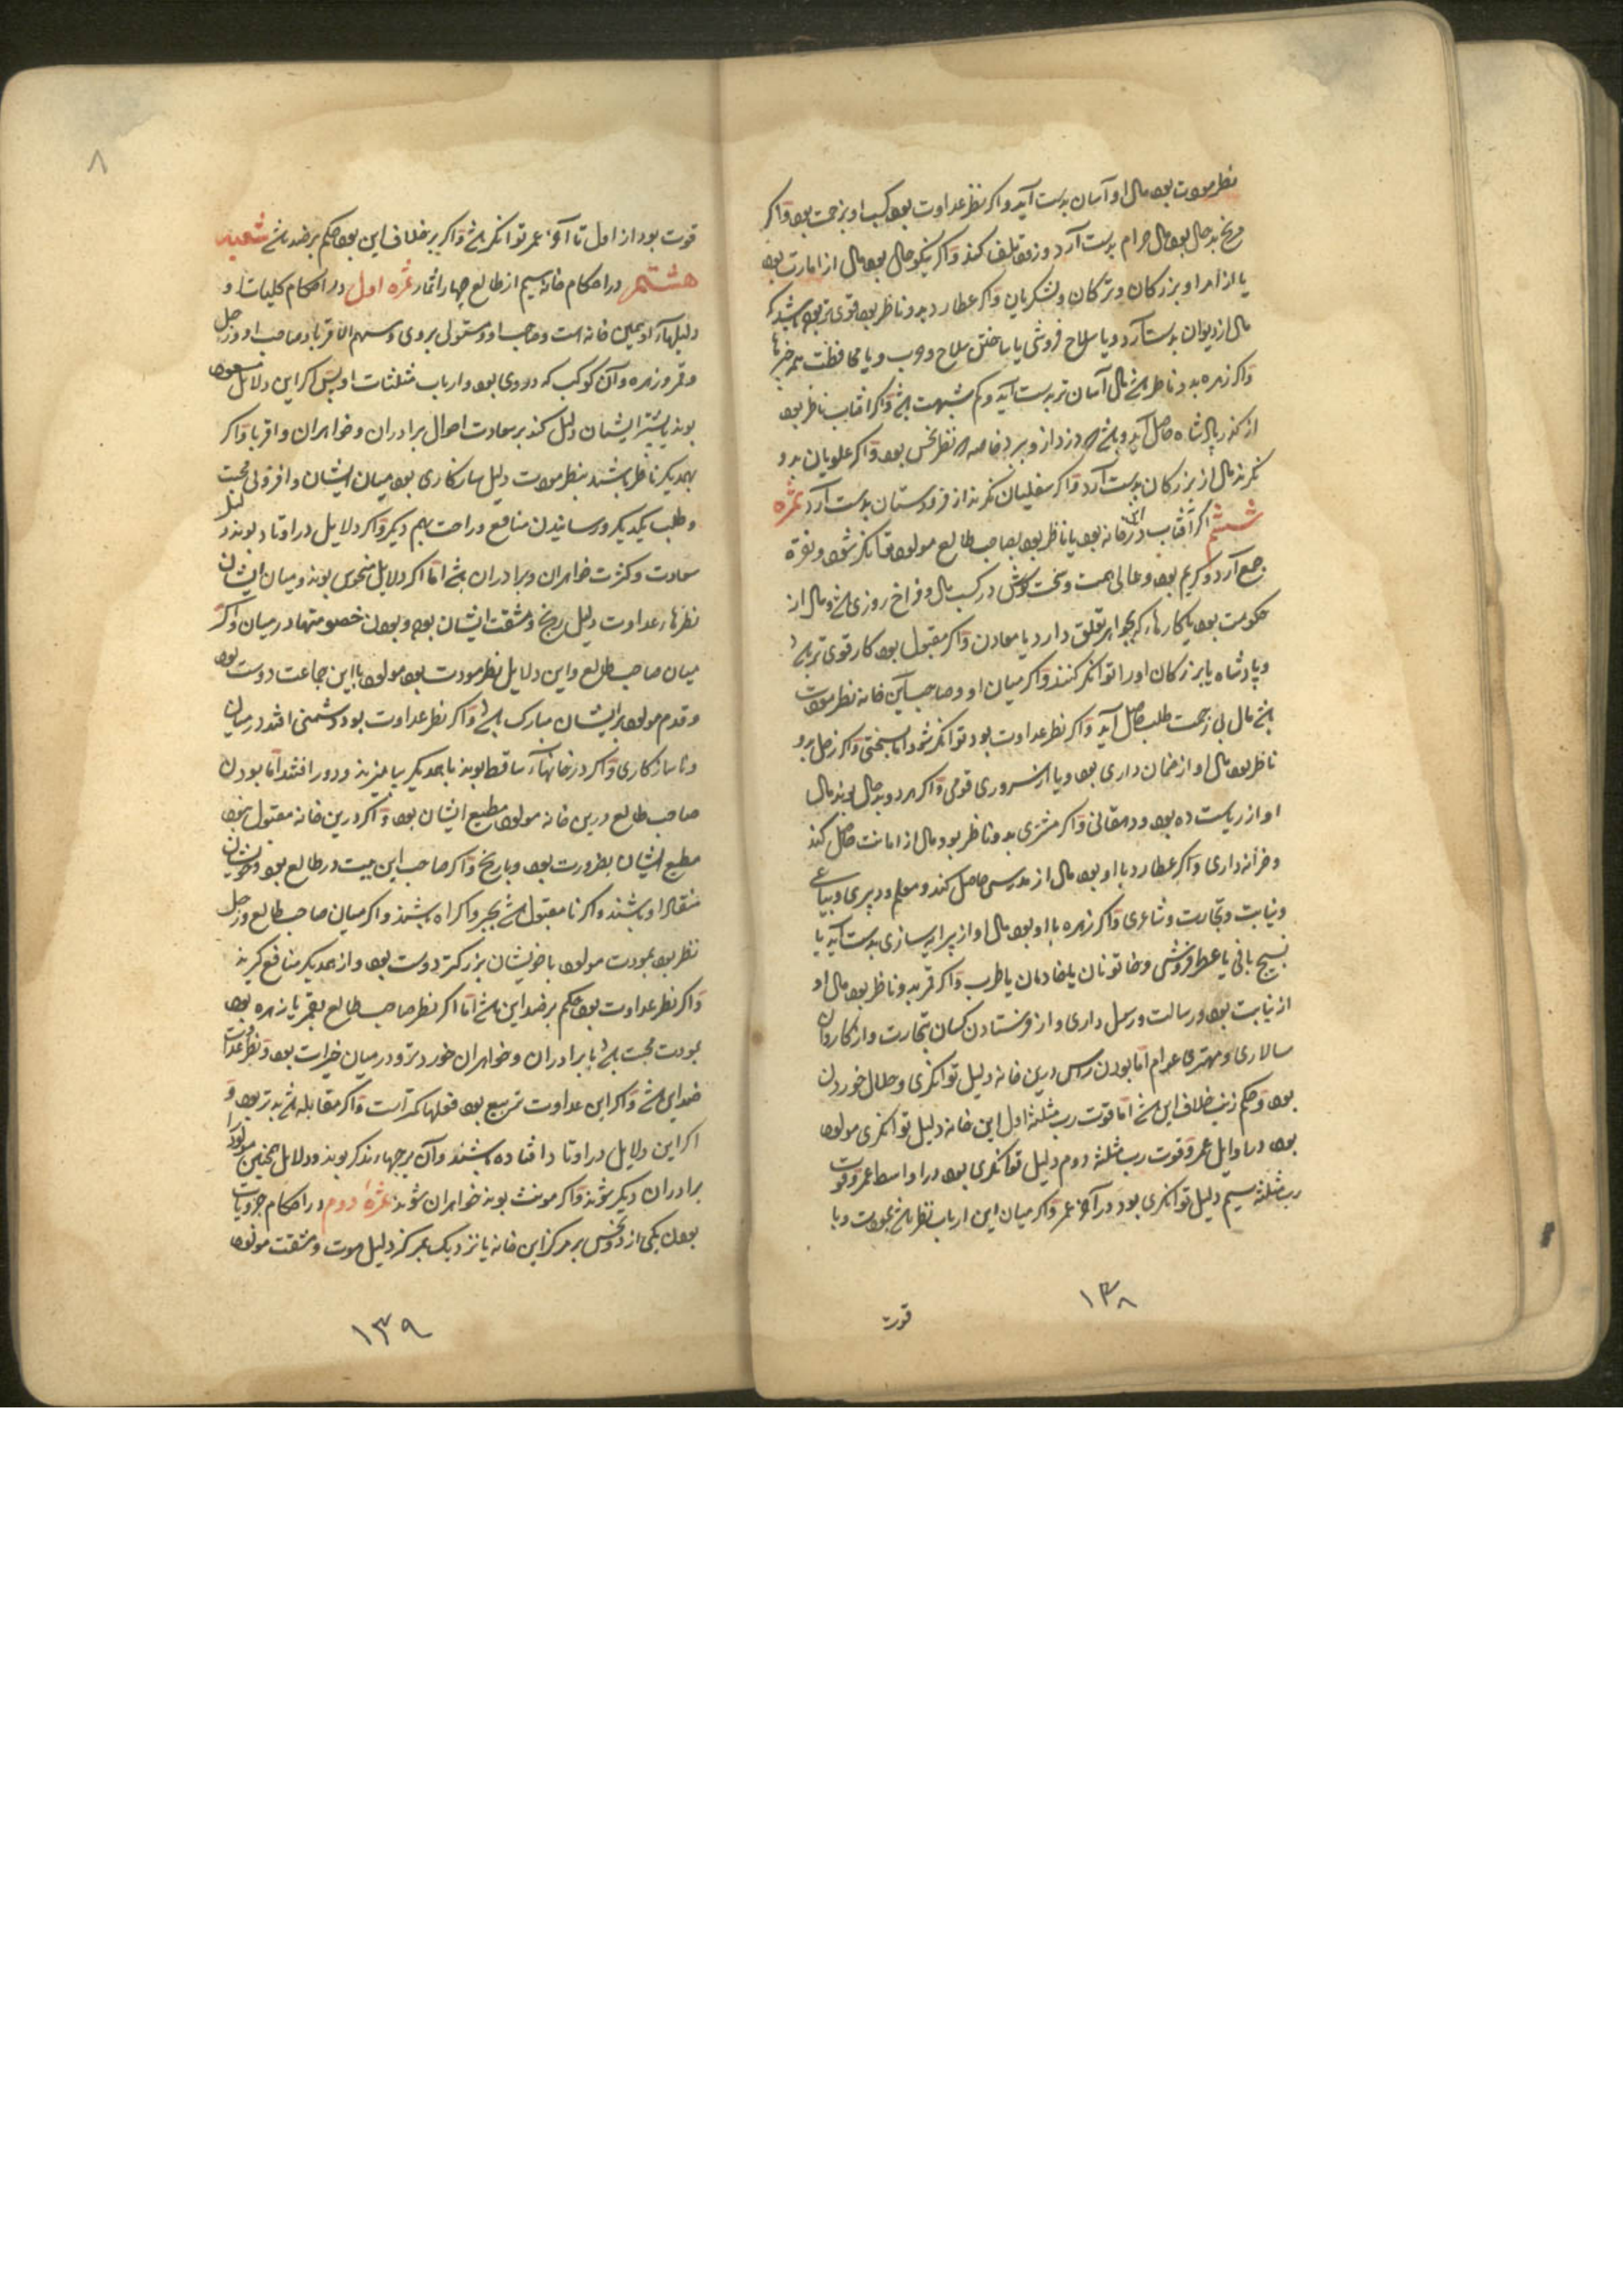 نظر مودت بود مال او آسان بدست آید و اگر نظر عداوت بود کسب او بزحمت بود و اگر
مریخ بدحال بود مال حرام بدست آرد و زود تلف کند و اگر نیکوحال بود مال از امارت بود
یا از امرا و بزرگان و ترکان و لشکریان و اگر عطارد بدو ناظر بود قوی تر بود
مال از دیوان بدست آرد و یا سلاح فروشی یا ساختن سلاح و حرب و یا محافظت
و اگر زهره بدو ناظر باشد مال آسان تر بدست آید و کم مشبهت باشد و اگر افتاب ناظر بود
از پادشاه حاصل آید و دزد از و برد خاصه که نظر نحس بود و اگر علویان بدو
نگرند مال از بزرگان بدست آرد و اگر سفلیان نگرند از فرودستان بدست آرد ثمره
ششم اگر آفتاب درین خانه بود یا ناظر بود بصاحب طالع مولود توانگر شود و نقره
جمع آرد و کریم بود و عالی همت و سخت کوش در کسب مال و فراخ روزی باشد و مال از
حکومت بود یا کارها که بجواهر تعلق دارد یا معادن و اگر مقبول بود کار قوی تر باشد
و پادشاه یا بزرگان او را توانگر کنند و اگر میان او و صاحب این خانه نظر مودت
باشد مال بی زحمت طلب حاصل آید و اگر نظر عداوت بود توانگر شود اما بسختی و اگر زحل برو
ناظر بود مال او از ضمان داری بود و یا از سروری قومی و اگر هر دو بدحال بوند مال
او از ریاست ده بود و دهقانی و اگر مشتری بدو ناظر بود مال از امانت حاصل کند
و خزانه داری و اگر عطارد با او بود مال از مدرسی حاصل کند و معلم و دبیری و بیاعی
و نیابت و تجارت و شاعری و اگر زهره با او بود مال او از پیرایه سازی بدست آید یا
نسیج بافی یا عطرفروشی و خاتونان یا خادمان یا طرب و اگر قمر بدو ناظر بود مال او
از نیابت بود و رسالت و رسل داری و از فرستادن کسان بتجارت و از کاروان
سالاری و مهتری عوام اما بودن راس درین خانه دلیل توانگری و حلال خوردن
بود و حکم ذنب خلاف این باشد اما قوت رب مثلثه اول این خانه دلیل توانگری مولود
بود در اوایل عمر و قوت رب مثلثه دوم دلیل توانگری بود در اواسط عمر و قوت
رب مثلثه سیم دلیل توانگری بود در آخر عمر و اگر میان این ارباب نظر باشد بمودت و با
قوت
١٣٨
٨
قوت بود از اول تا آخر عمر توانگر باشد و اگر بر خلاف این بود حکم بر ضد باشد شعبه
هشتم در احکام خانه سیم از طالع چهار اثمار ثمره اول در احکام کلیات او
دلیلهاء او همین خانه است و صاحب او و مستولی بر وی و سهم الاقربا و صاحب او و زحل
و قمر و زهره و آن کوکب که در وی بود و ارباب مثلثات او پس اگر این دلایل مسعود
بوند بیشتر ایشان دلیل کند بر سعادت احوال برادران و خواهران و اقربا و اگر
بهمدیگر ناظر باشند بنظر مودت دلیل سازگاری بود میان ایشان و افزونی محبت
و طلب یکدیگر و رسانیدن منافع و راحت بهم دیگر و اگر دلایل در اوتاد بوند دلیل
سعادت و کثرت خواهران و برادران باشد اما اگر دلایل منحوس بوند و میان ایشان
نظرهاء عداوت دلیل رنج و مشقت ایشان بود و بودن خصومتها در میان و اگر
میان صاحب طالع و این دلایل نظر مودت بود مولود با این جماعت دوست بود
و قدم مولود بر ایشان مبارک باشد و اگر نظر عداوت بود دشمنی افتد در میان
و ناسازگاری و اگر در خانهاء ساقط بوند با همدیگر نیامیزند و دور افتند اما بودن
صاحب طالع درین خانه مولود مطیع ایشان بود و اگر درین خانه مقبول نبود
مطیع ایشان بضرورت بود و با رنج و اگر صاحب این بیت در طالع بود خویشان
منقاد او باشند و اگر نامقبول باشد بجبر و اکراه باشند و اگر میان صاحب طالع و زحل
نظر بود بمودت مولود با خویشان بزرگتر دوست بود و از همدیگر منافع گیرند
و اگر نظر عداوت بود حکم بر ضد این باشد اما اگر نظر صاحب طالع بقمر یا زهره بود
بمودت محبت باشد با برادران و خواهران خوردتر و در میان خیرات بود و نظر عداوت
ضد این باشد و اگر این عداوت تربیع بود فعلها کمتر است و اگر مقابله باشد بدتر بود و
اگر این دلایل در اوتاد افتاده باشند و آن برجهاء مذکر بوند و دلایل همچنین مولود را
برادران دیگر شوند و اگر مونث بوند خواهران شوند ثمره دوم در احکام جزویات
بودن یکی از دو نحس بر مرکز این خانه یا نزدیک بمرکز دلیل موت و مشقت مولود
١٣٩